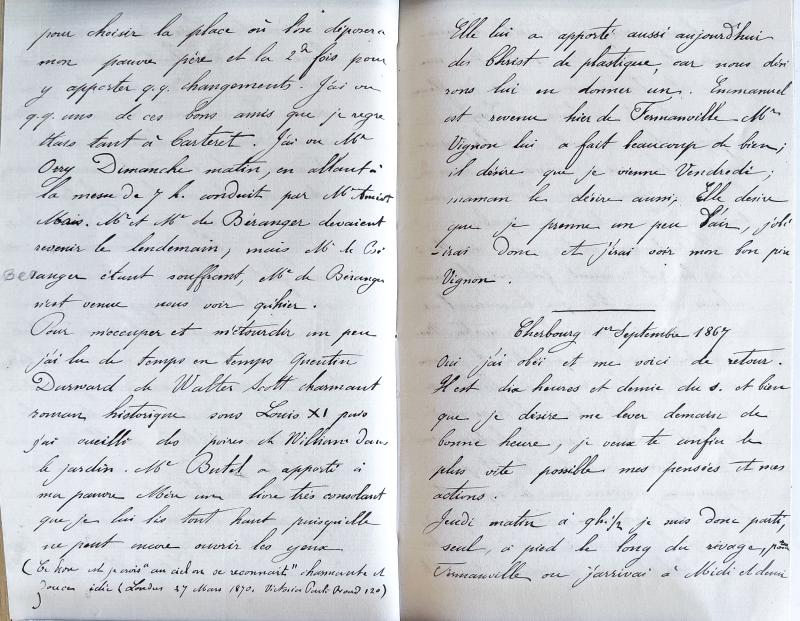 pour choisir la place où l'on déposera
mon pauvre père et la 2de fois pour
y apporter q.q. changements. J'ai vu
q.q. uns de ces bons amis que je regre
ttais tant à Carteret. J'ai vu Mr
Dimanche matin, en allant à
la messe de 7 h. conduit par Mr
Mr et Me de Béranger devaient
revenir le lendemain, mais Mr de Bé
Beranger étant souffrant, Me de Béranger
n'est venue nous voir qu'hier.
Pour m'occuper et m'étourdir un peu
j'ai lu de temps en temps Quentin
Durward de Walter Scott charmant
roman historique sous Louis XI puis
j'ai cueilli des poires de William dans
le jardin. Me Butel a apporté à
ma pauvre Mère un livre très consolant
que je lui lis tout haut puisqu'elle
ne peut encore ouvrir les yeux
(Ce livre est je crois "au ciel on se reconnait" charmante et
douce idée (Londres 27 Mars 1870. Victoria Park Road 120)
Elle lui a apporté aussi aujourd'hui
des Christ de plastique, car nous dési
rons lui en donner un. Emmanuel
est revenu hier de Fermanville Mr
Vignon lui a fait beaucoup de bien;
il désire que je vienne Vendredi;
maman le désire aussi, Elle desire
que je prenne un peu l'air, j'obé
-irai donc et j'irai voir mon bon père
Vignon.
Cherbourg 1er Septembre 1867
Oui j'ai obéi et me voici de retour.
Il est dix heures et demie du s. et bien
que je désire me lever demain de
bonne heure, je veux te confier le
plus vite possible mes pensées et mes
actions.
Jeudi matin à 9h 1/2 je suis donc parti,
seul, à pied le long du rivage, pour
Fermanville ou j'arrivai à Midi et demi